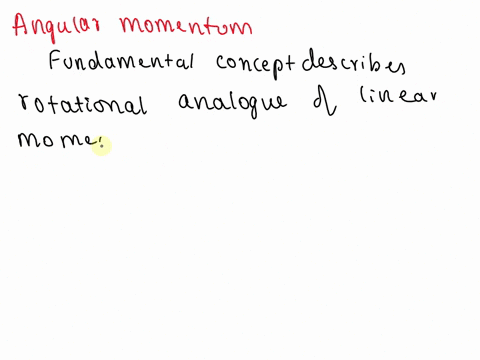 Angular momentum
Fundamental concept describes
rotational analogue of linear
mome